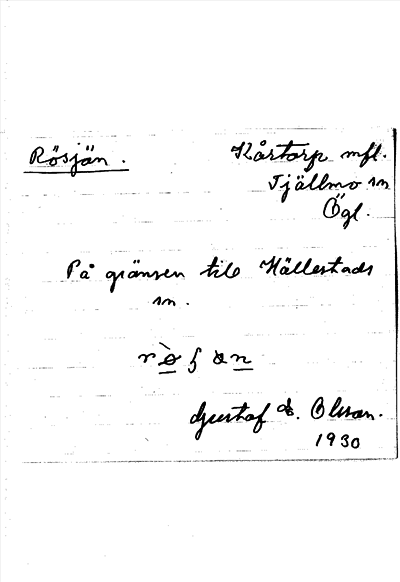 Rösjön.
Kårtorp mfl.
Tjällmo sn
Ögl.
På gränsen till Hällestads
sn.
Gustaf E. Olsson.
1930